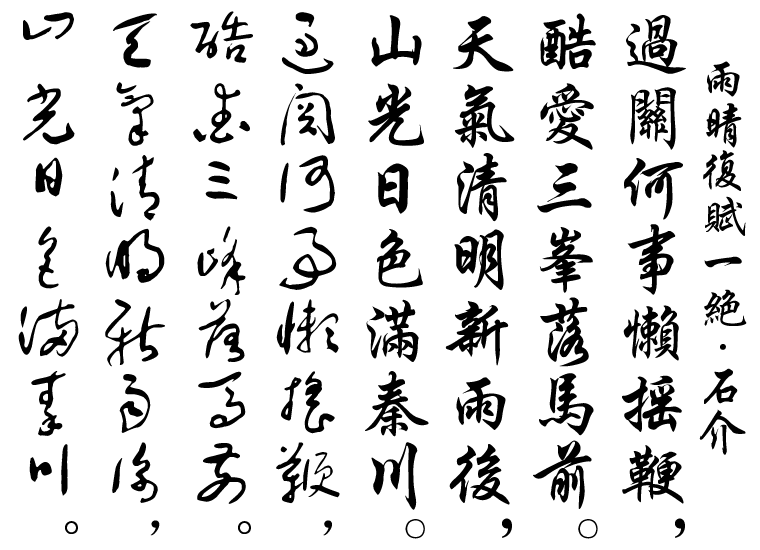 雨晴復賦一絕·石介
過關何事懶搖鞭，
酷愛三峯落馬前。
天氣清明新雨後，
山光日色滿秦川。
過關何事懶搖鞭，
酷愛三峰落馬前。
天氣清明新雨後，
山光日色滿秦川。